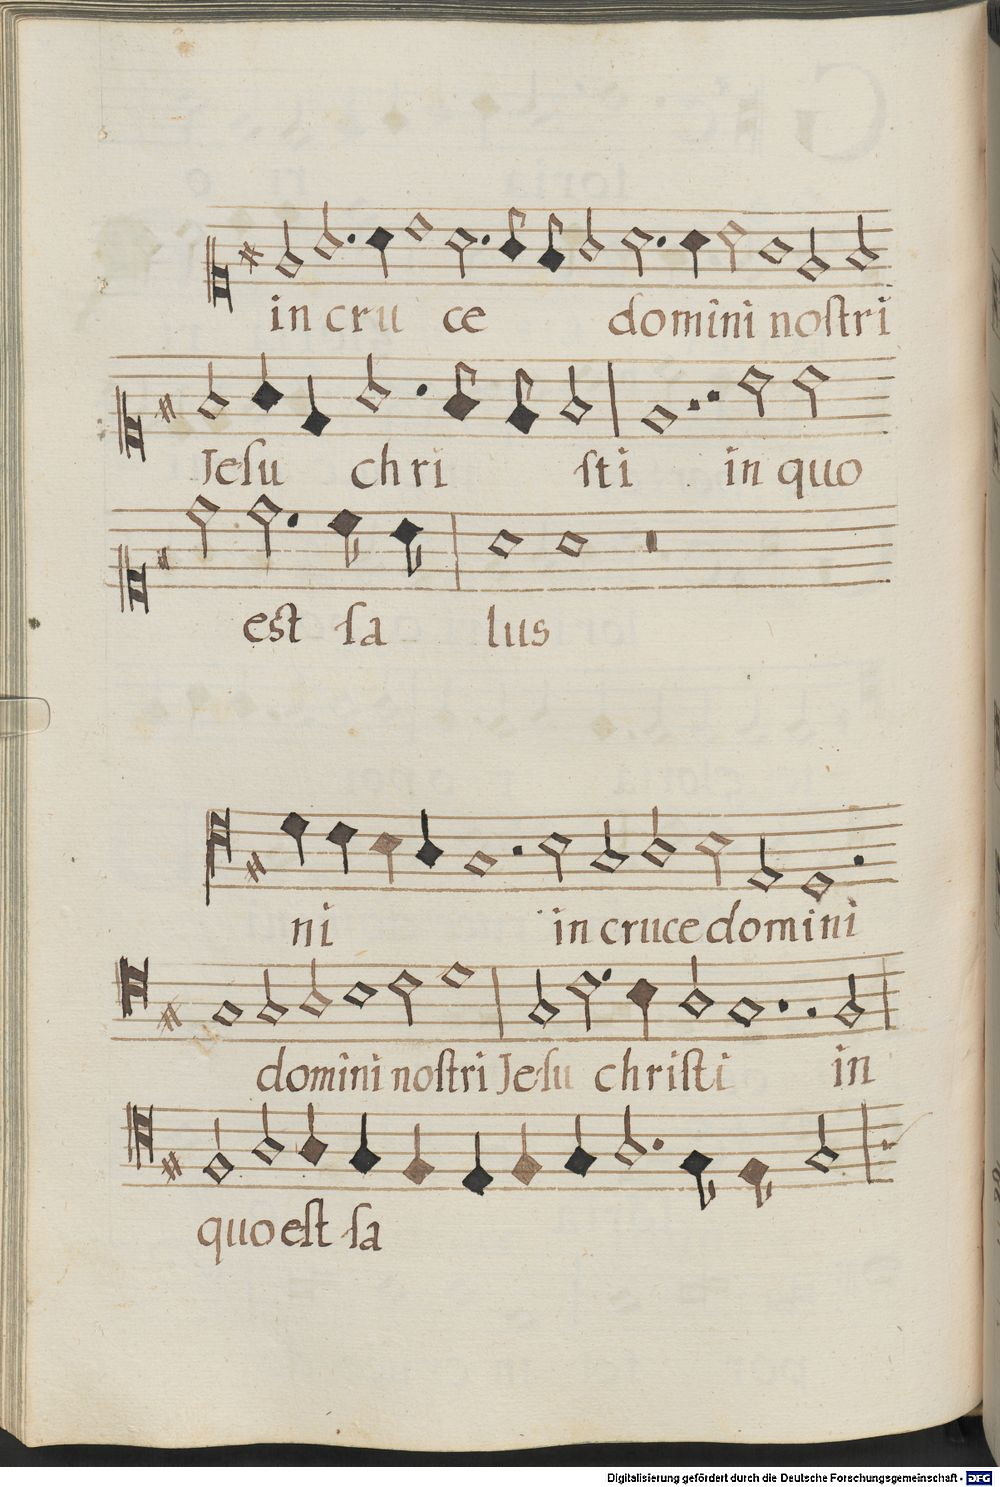 in cru ce domini noſtri
Jeſu chri ſti in quo
eſt ſa lus
ni in cruce domini
domini noſtri Jeſu chriſti in
quo eſt ſa
Digitalisierung gefördert durch die Deutsche Forschungsgemeinschaft - DFG